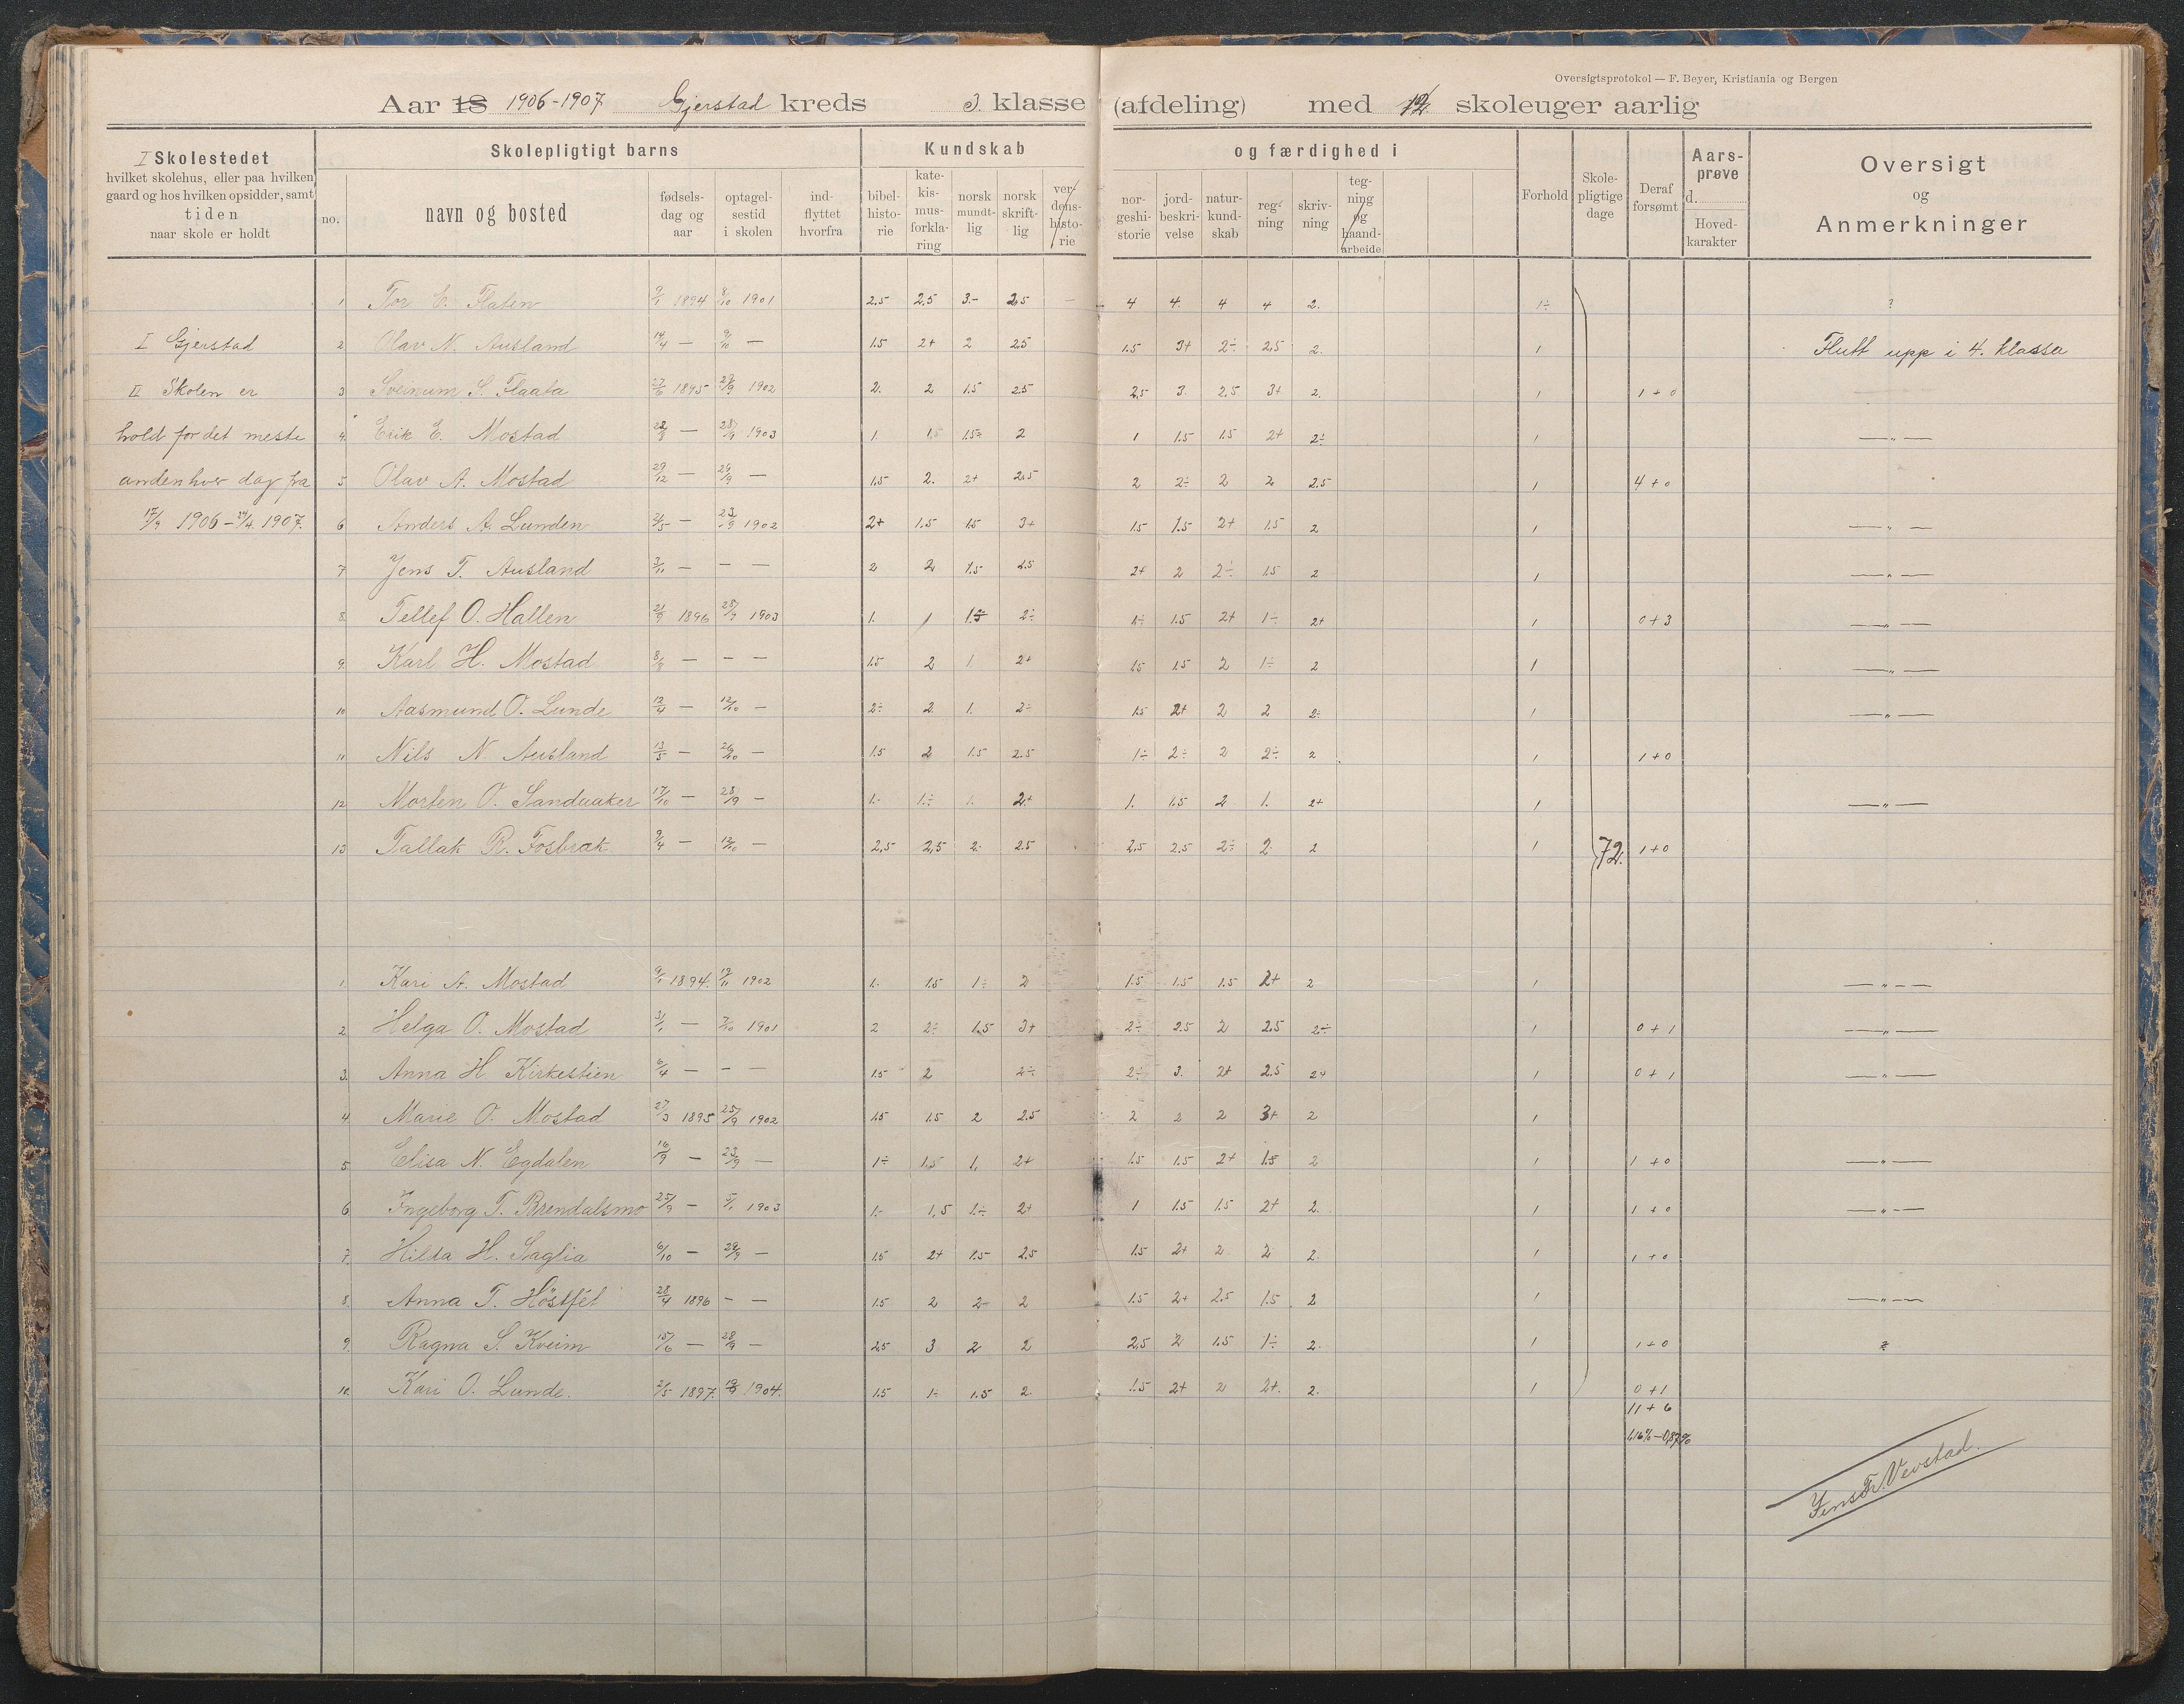 Oversigtsprotokol — F. Beyer, Kristiania og Bergen
Aar 18 1906-1907 Gjerstad kreds 3. klasse (afdeling) med 12 skoleuger aarlig
I Skolestedet
hvilket skolehus, eller paa hvilken
gaard og hos hvilken opsidder, samt
tiden
naar skole er holdt
Skolepligtigt barns
no.
navn og bosted
fødsels-
dag og
aar
optagel-
sestid
i skolen
ind-
flyttet
hvorfra
Kundskab
bibel-
histo-
rie
kate-
kis-
mus-
forkla-
ring
norsk
mundt-
lig
norsk
skrift-
lig
ver-
dens-
histo-
rie
og færdighed i
nor-
geshi-
storie
jord-
beskri-
velse
natur-
kund-
skab
reg-
ning
skriv-
ning
teg-
ning
og
haand-
arbeide
Forhold
Skole-
pligtige
dage
Deraf
forsømt
Aars-
prøve
d.
Hoved-
karakter
Oversigt
og
Anmerkninger
I Gjerstad
II Skolen er
hold for det meste
anden hver dag fra
17/9 1906 - 24/4 1907.
1 Tor E. Flaten 9/1 1894 8/10 1901 2.5 2,5 3.- 2.5 — 4 4. 4 4 2. 1÷ ?
2 Olav N. Ausland 14/4 — 9/10 — 1.5 2+ 2 2.5 1.5 3+ 2÷ 2,5 2. 1 Flutt upp i 4. klassa
3 Sveinum S. Flaata 27/6 1895 29/9 1902 2. 2 1.5 2.5 2,5 3. 2.5 3+ 2. 1 1+0
4. Erik E. Mostad 22/8 — 28/9 1903 1. 1,5 1.5÷ 2 1 1.5 1.5 2+ 2÷ 1 —„—
5 Olav A. Mostad 29/12 — 29/9 — 1,5 2. 2+ 2.5 2 2÷ 2 2 2.5 1 4+0
6 Anders A. Lunden 2/5 — 23/9 1902 2+ 1.5 1.5 3+ 1.5 1.5 2+ 1.5 2 1 —„—
7 Jens T. Ausland 3/11 — — — 2 2 1.5 2.5 2+ 2 2÷ 1.5 2 1 —„—
8. Tellef O. Hallen 21/9 1896 25/9 1903 1. 1 1.5 2÷ 1÷ 1.5 2+ 1÷ 2+ 1 0+3 —„—
9. Karl H. Mostad 8/8 — — — 1.5 2 1 2+ 1.5 1.5 2 1÷ 2 1 —„—
10 Aasmund O. Lunde 12/4 — 12/10 — 2÷ 2. 1. 2÷ 1.5 2+ 2 2 2÷ 1 —„—
11 Nils N. Ausland 13/5 — 26/10 — 1.5 2 1.5 2.5 1÷ 2÷ 2 2÷ 2 1 1+0
12 Morten O. Sandaaker 17/10 — 28/9 — 1.- 1÷ 1. 2+ 1. 1.5 2 1. 2+ 1 —„—
13 Tallak R. Fosbræk 9/4 — 12/10 — 2,5 2,5 2. 2.5 2,5 2.5 2÷ 2. 2 1 72. 1+0
1. Kari A. Mostad 9/1 1894. 19/11 1902 1. 1.5 1÷ 2 1.5 1.5 1.5 2+ 2 1 —„—
2 Helga O. Mostad 31/1 — 7/10 1901 2 2÷ 1,5 3+ 2÷ 2.5 2 2.5 2÷ 1 0+1 —„—
3. Anna H Kirkestien 6/4 — — — 1.5 2 2÷ 2÷ 3. 2+ 2.5 2+ 1 0+1 —„—
4 Marie O. Mostad 27/3 1895 25/9 1902 1.5 1.5 2 2.5 2 2 2 3+ 2 1
5. Elisa N. Egdalen 16/9 — 23/9 — 1÷ 1.5 1. 2+ 1.5 1.5 2+ 1.5 2 1 1+0 —„—
6 Ingeborg T. Brendalsmo 25/9 — 5/1 1903 1.- 1,5 1÷ 2+ 1 1.5 1.5 2+ 2. 1 1+0 —„—
7. Hilda H. Saglia 6/10 — 29/9 — 1.5 2+ 1.5 2.5 1.5 2+ 2 2 2. 1 1+0
8. Anna T. Höstfét 28/4 1896 — — 1.5 2 2- 2 1.5 2+ 2.5 1.5 2 1 —„—
9. Ragna S. Kveim 15/6 — 28/9 — 2,5 3 2 2 2,5 2 1.5 1÷ 2. 1 1+0
10. Kari O. Lunde. 2/5 1897. 19/9 1904. 1.5 1÷ 1.5 2. 1.5 2+ 2 2+. 2. 1 0+1
11+6
1,16% — 0,87%
Jens Fr. Vevstad.